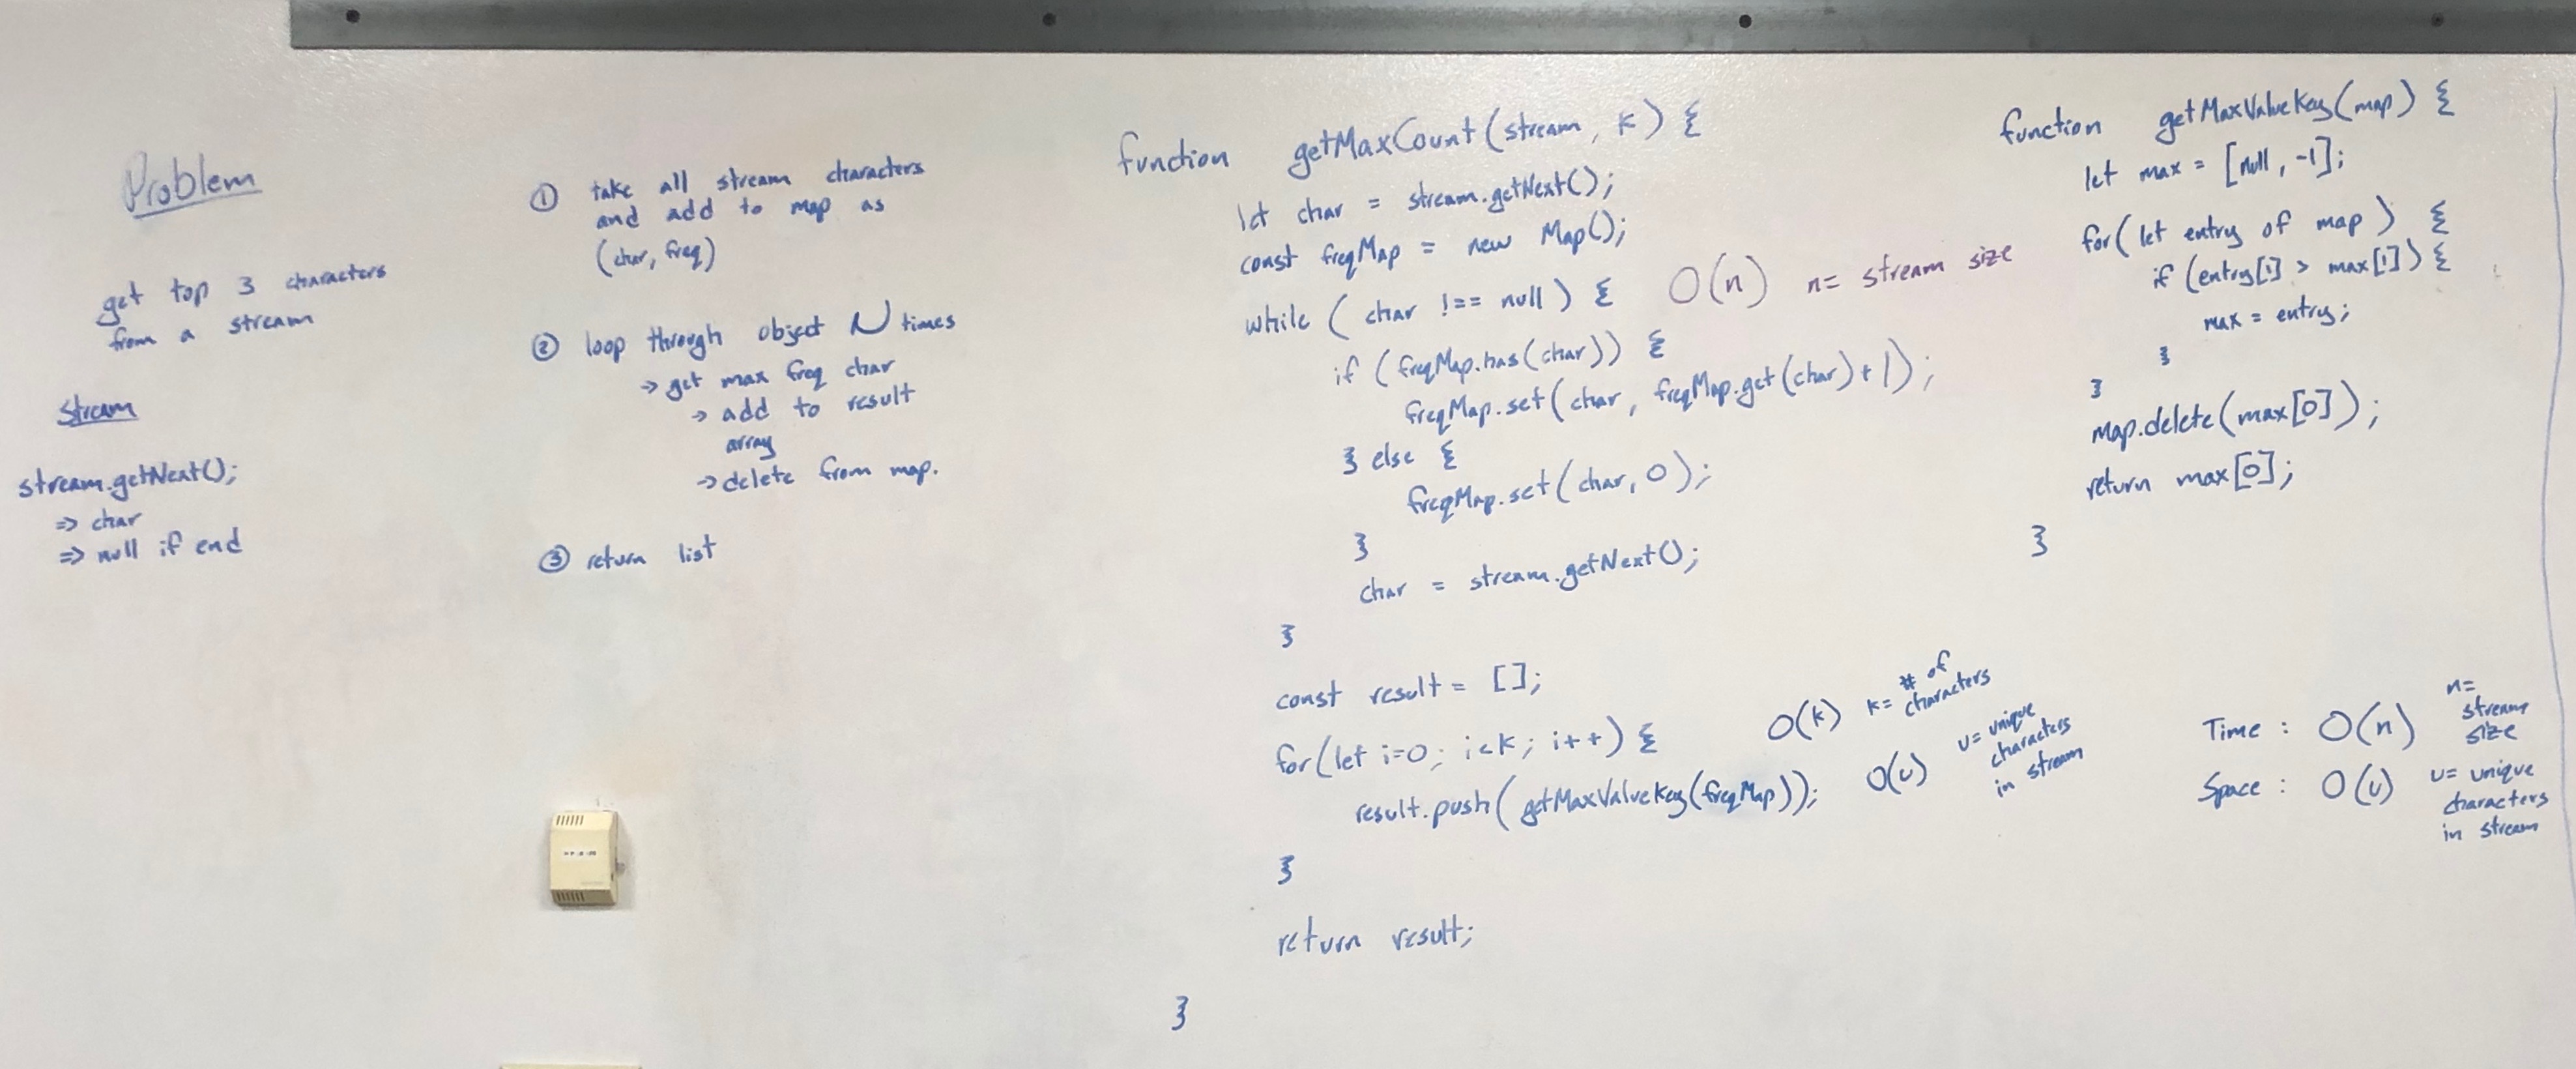 Problem
get top 3 characters
from a stream
Stream
stream.getNext();
=> char
=> null if end
① take all stream characters
and add to map as
(char, freq)
② loop through object N times
→ get max freq char
→ add to result
array
→ delete from map.
③ return list
function getMaxCount(stream, k) {
let char = stream.getNext();
const freqMap = new Map();
while ( char !== null ) { O(n) n= stream size
if (freqMap.has(char)) {
freqMap.set(char, freqMap.get(char)+1);
} else {
freqMap.set(char, 0);
}
char = stream.getNext();
}
const result = [];
for(let i=0; i<k; i++) { O(k) k= # of
characters
result.push(getMaxValueKey(freqMap)); O(u) u= unique
characters
in stream
}
return result;
}
function getMaxValueKey(map) {
let max = [null, -1];
for(let entry of map) {
if (entry[1] > max[1]) {
max = entry;
}
}
map.delete(max[0]);
return max[0];
}
Time : O(n) n=
stream
size
Space : O(u) u= unique
characters
in stream